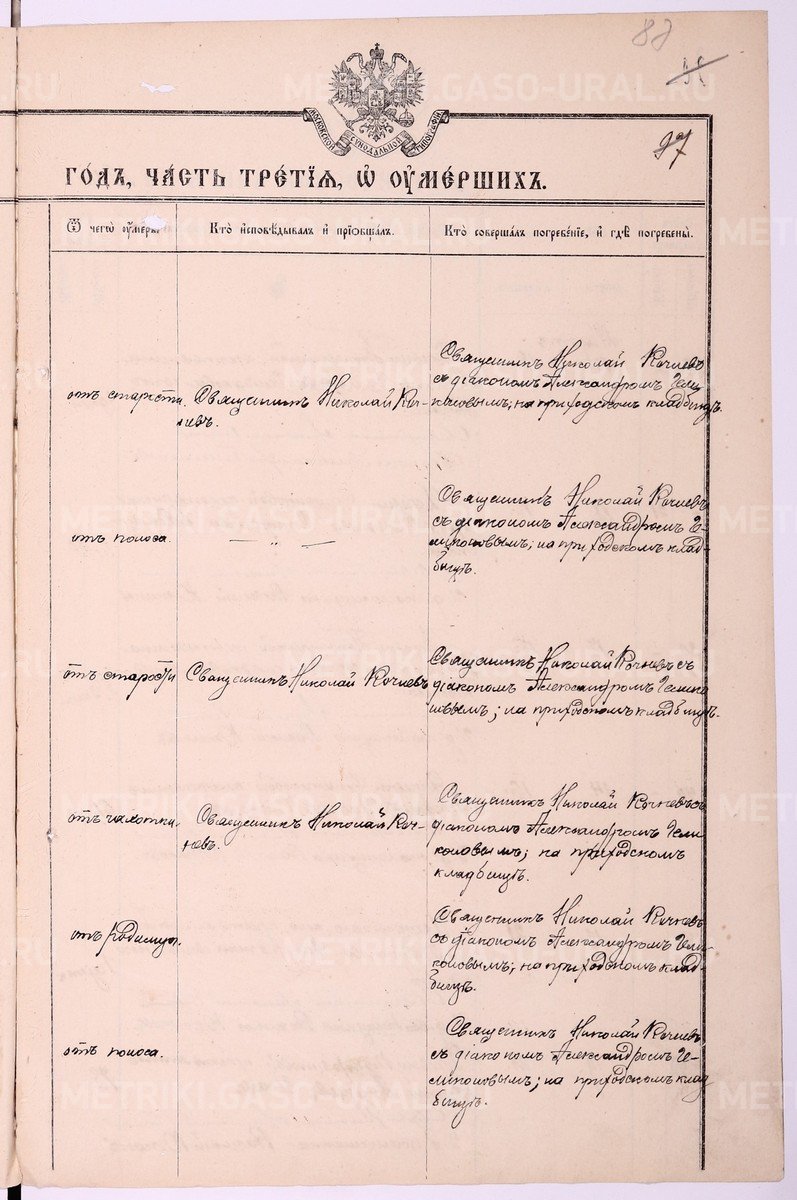 88
97
МОСКОВСКОЙ СѴНОДАЛЬНОЙ ТИПОГРАФІИ
ГОДЪ, ЧАСТЬ ТРЕТІЯ, Ѡ ОУМЕРШИХЪ.
Ѿ чегѡ оумеръ
Кто исповѣдывалъ и пріобщалъ.
Кто совершалъ погребеніе, и гдѣ погребены.
отъ старости.
Священникъ Николай Коч-
невъ.
Священникъ Николай Кочневъ
съ діакономъ Александромъ Гели-
коновымъ; на приходскомъ кладбищѣ.
отъ поноса.
— „ —
Священникъ Николай Кочневъ
съ діакономъ Александромъ Ге-
ликоновымъ; на приходскомъ клад-
бищѣ.
отъ старости
Священникъ Николай Кочневъ
Священникъ Николай Кочневъ съ
діакономъ Александромъ Гелико-
новымъ; на приходскомъ кладбищѣ.
отъ чахотки.
Священникъ Николай Коч-
невъ.
Священникъ Николай Кочневъ съ
діакономъ Александромъ Гели-
коновымъ; на приходскомъ
кладбищѣ.
отъ родимца.
Священникъ Николай Кочневъ
съ діакономъ Александромъ Гели-
коновымъ; на приходскомъ клад-
бищѣ.
отъ поноса.
Священникъ Николай Кочневъ
съ діакономъ Александромъ Ге-
ликоновымъ; на приходскомъ клад-
бищѣ.
METRIKI.GASO-URAL.RU